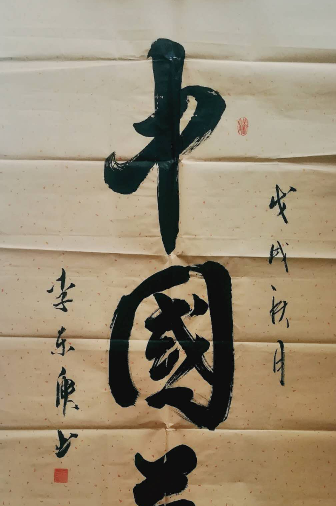 戊戌秋月
中國
李东庚书